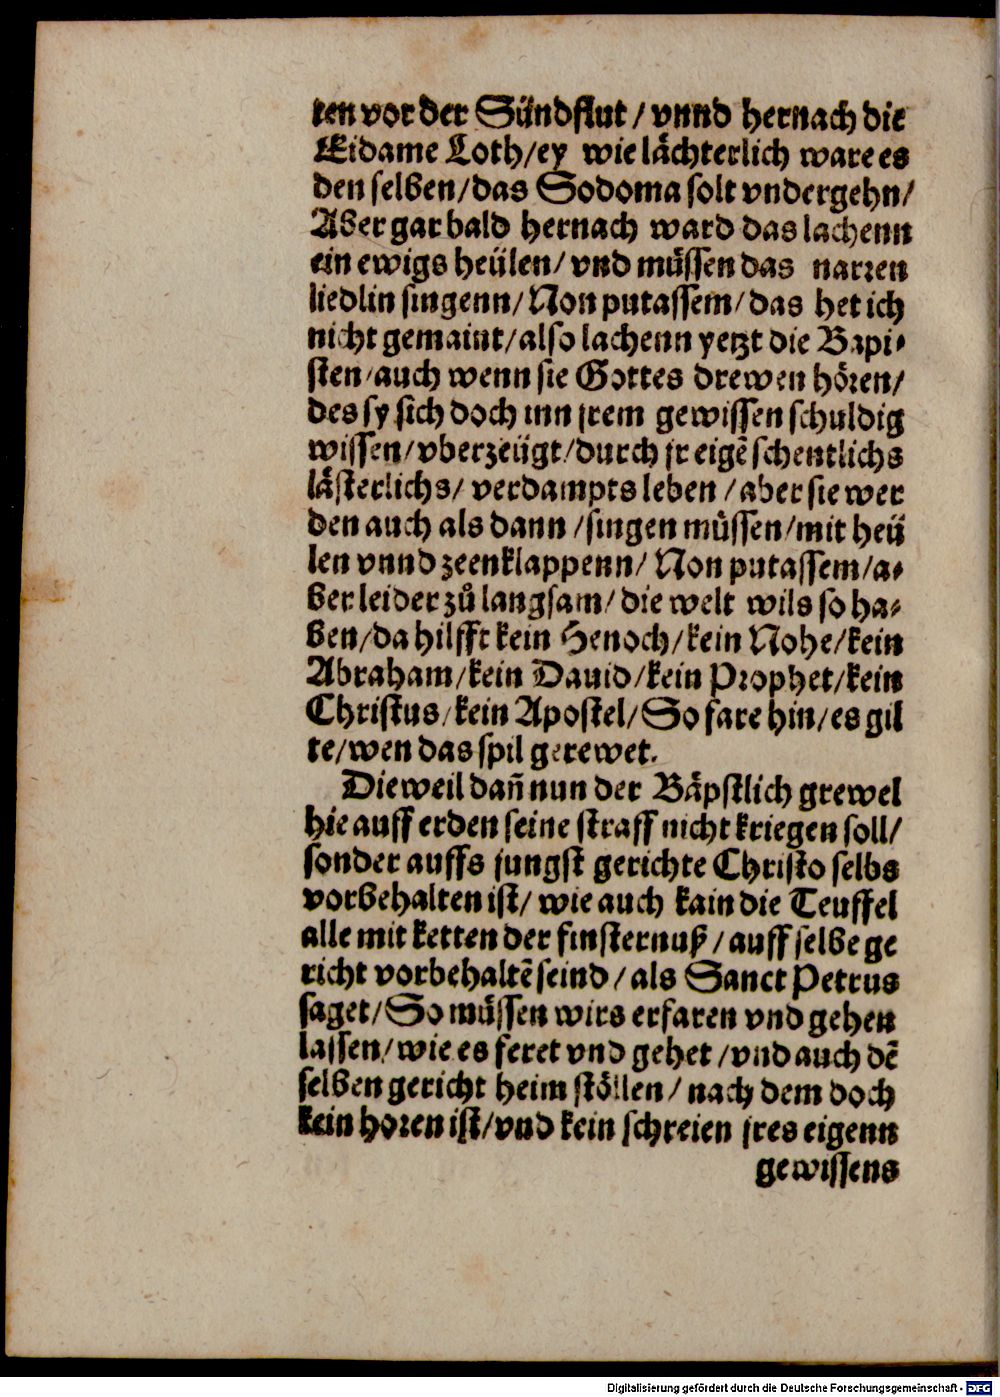 ten vor der Sündflut / vnnd hernach die
Eidame Loth/ey wie lächterlich ware es
den selben/das Sodoma solt vndergehn/
Aber gar bald hernach ward das lachenn
ein ewigs heülen/ vnd müssen das narren
liedlin singenn/ Non putassem/ das het ich
nicht gemaint/also lachenn yetzt die Bapi⸗
sten/auch wenn sie Gottes drewen hören/
des sy sich doch inn jrem gewissen schuldig
wissen/vberzeügt/durch jr eigẽ schentlichs
lästerlichs/ verdampts leben /aber sie wer
den auch als dann /singen müssen/mit heü
len vnnd zeenklappenn/ Non putassem/a⸗
ber leider zů langsam/ die welt wils so ha⸗
ben/da hilfft kein Henoch/kein Nohe/kein
Abraham/kein Dauid/kein Prophet/kein
Christus/kein Apostel/So fare hin/es gil
te/wen das spil gerewet.
Die weil dañ nun der Bäpstlich grewel
hie auff erden seine straff nicht kriegen soll/
sonder auffs jungst gerichte Christo selbs
vorbehalten ist/ wie auch kain die Teuffel
alle mit ketten der finsternuß / auff selbe ge
richt vorbehaltẽ seind / als Sanct Petrus
saget/ So müssen wirs erfaren vnd gehen
lassen/wie es feret vnd gehet /vnd auch dẽ
selben gericht heim stöllen / nach dem doch
kein horen ist/vnd kein schreien jres eigenn
gewissens
Digitalisierung gefördert durch die Deutsche Forschungsgemeinschaft - DFG